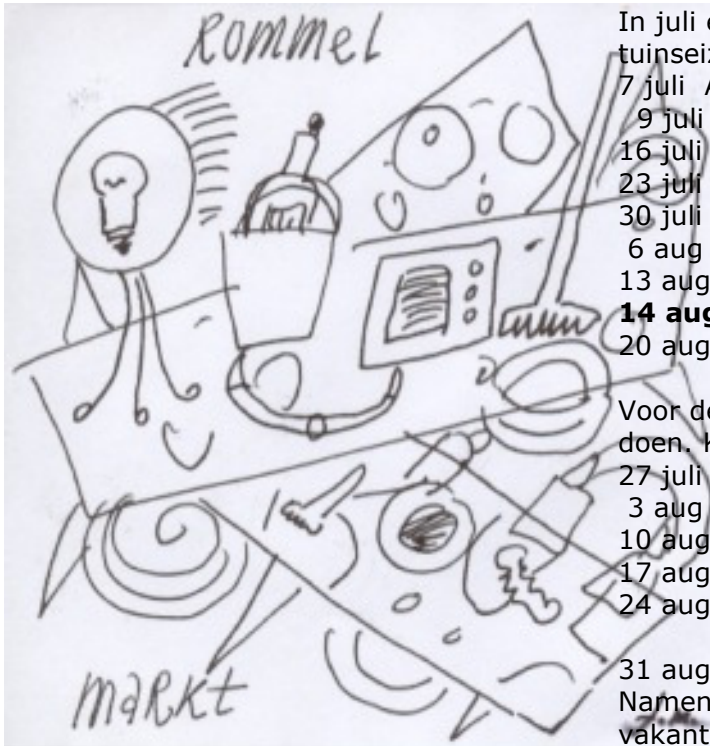 ROMMEL
MARKT
In juli
7 juli
9 juli
16 juli
23 juli
30 juli
6 aug
13 aug
14 aug
20 aug
Voor
doen.
27 juli
3 aug
10 aug
17 aug
24 aug
31 aug
Namen